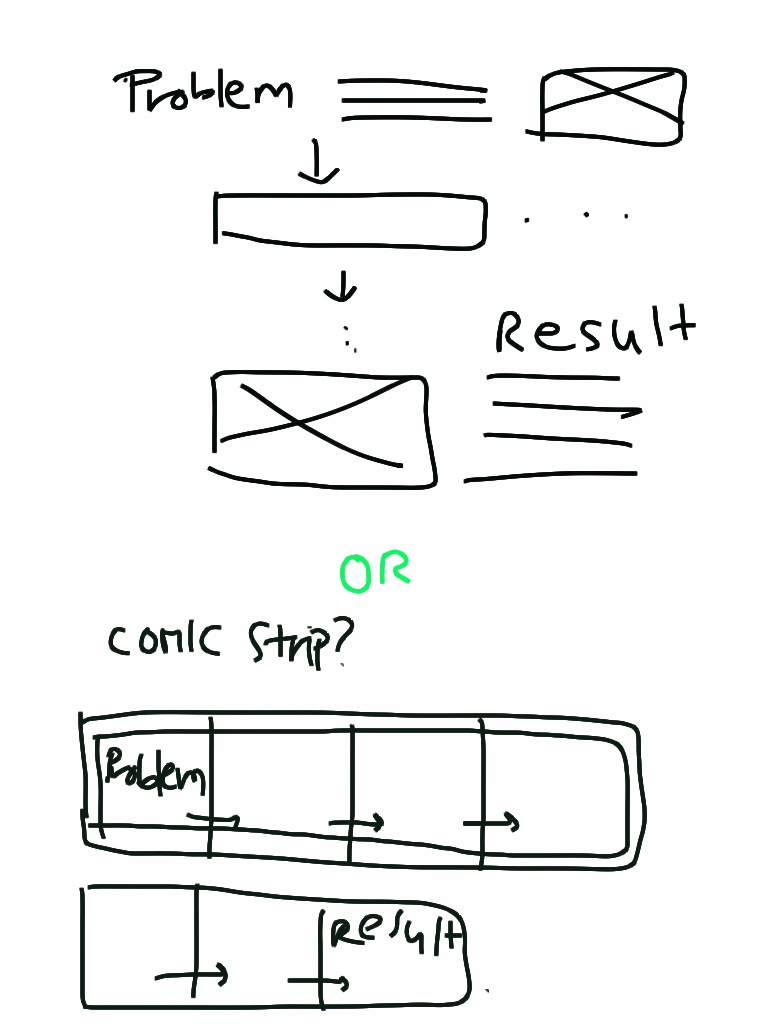 Problem
Result
OR
COMIC Strip?
Problem
Result